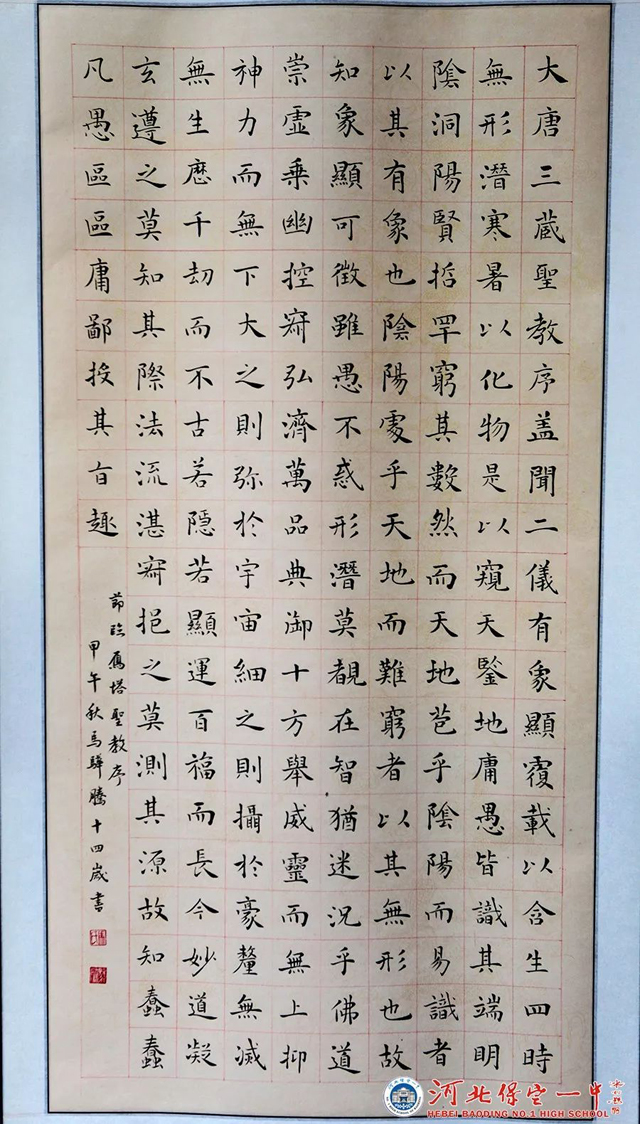 大唐三藏聖教序盖聞二儀有象顯覆載以含生四時
無形潛寒暑以化物是以窺天鑒地庸愚皆識其端明
陰洞陽賢哲罕窮其數然而天地苞乎陰陽而易識者
以其有象也陰陽處乎天地而難窮者以其無形也故
知象顯可徵雖愚不惑形潛莫覩在智猶迷況乎佛道
崇虛乗幽控寂弘濟萬品典御十方舉威靈而無上抑
神力而無下大之則弥於宇宙細之則攝於豪釐無滅
無生歷千劫而不古若隱若顯運百福而長今妙道凝
玄遵之莫知其際法流湛寂挹之莫測其源故知蠢蠢
凡愚區區庸鄙投其旨趣
節臨雁塔聖教序
甲午秋馬驊騰十四歲書
河北保定一中
HEBEI BAODING NO.1 HIGH SCHOOL